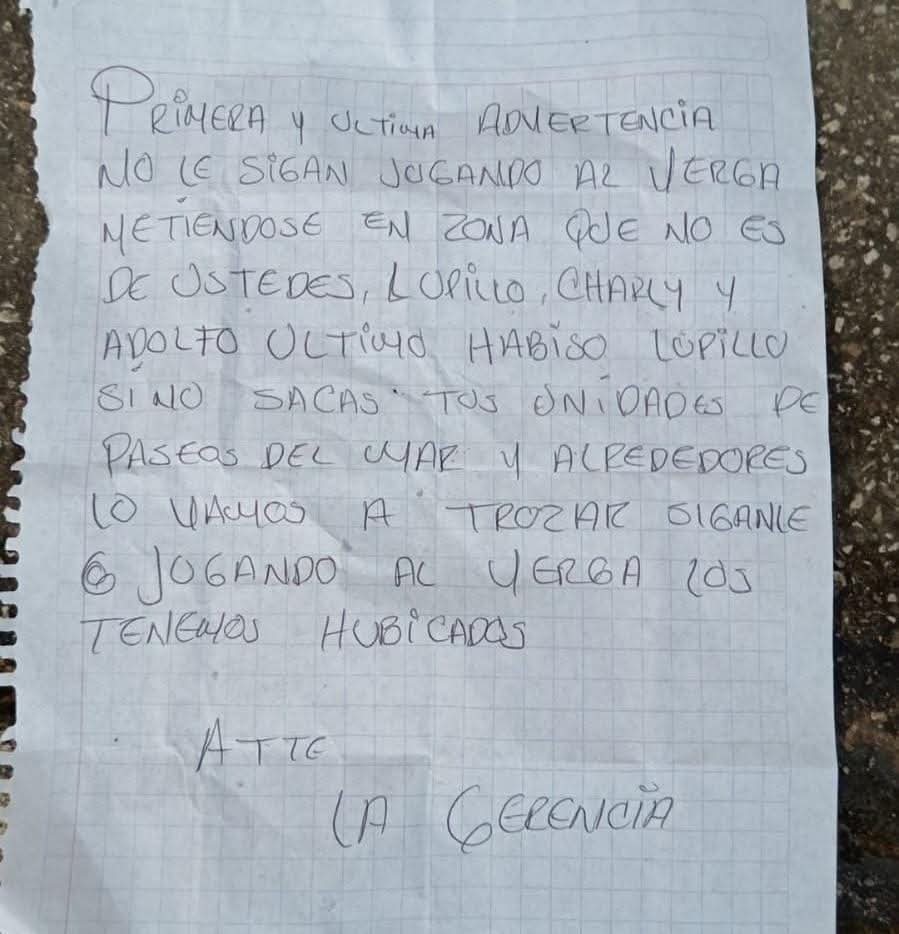 PRIMERA Y ULTIMA ADVERTENCIA
NO LE SIGAN JUGANDO AL VERGA
METIENDOSE EN ZONA QUE NO ES
DE USTEDES, LUPILLO, CHARLY Y
ADOLFO ULTIMO HABISO LUPILLO
SI NO SACAS TUS UNIDADES DE
PASEOS DEL MAR Y ALREDEDORES
LO VAMOS A TROZAR SIGANLE
JUGANDO AL VERGA LOS
TENEMOS HUBICADOS
ATTE
LA GERENCIA